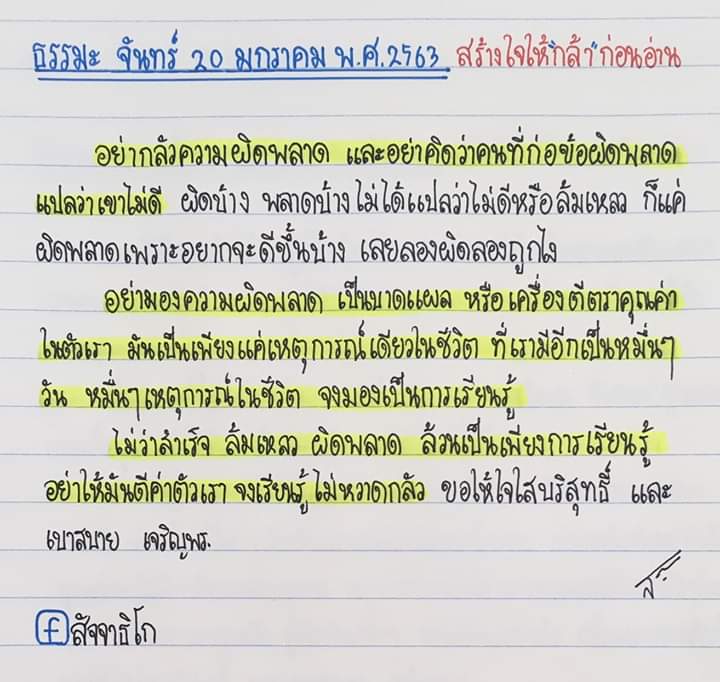 ธรรมะ จันทร์ 20 มกราคม พ.ศ.2563 สร้างใจให้"กล้า"ก่อนอ่าน
อย่ากลัวความผิดพลาด และอย่าคิดว่าคนที่ก่อข้อผิดพลาด
แปลว่าเขาไม่ดี ผิดบ้าง พลาดบ้างไม่ได้แปลว่าไม่ดีหรือล้มเหลว ก็แค่
ผิดพลาดเพราะอยากจะดีขึ้นบ้าง เลยลองผิดลองถูกไง
อย่ามองความผิดพลาด เป็นบาดแผล หรือเครื่องตีตราคุณค่า
ในตัวเรา มันเป็นเพียงแค่เหตุการณ์เดียวในชีวิต ที่เรามีอีกเป็นหมื่นๆ
วัน หมื่นๆเหตุการณ์ในชีวิต จงมองเป็นการเรียนรู้
ไม่ว่าสำเร็จ ล้มเหลว ผิดพลาด ล้วนเป็นเพียงการเรียนรู้
อย่าให้มันตีค่าตัวเรา จงเรียนรู้ ไม่หวาดกลัว ขอให้ใจใสบริสุทธิ์ และ
เบาสบาย เจริญพร.
f สัจจาธิโก